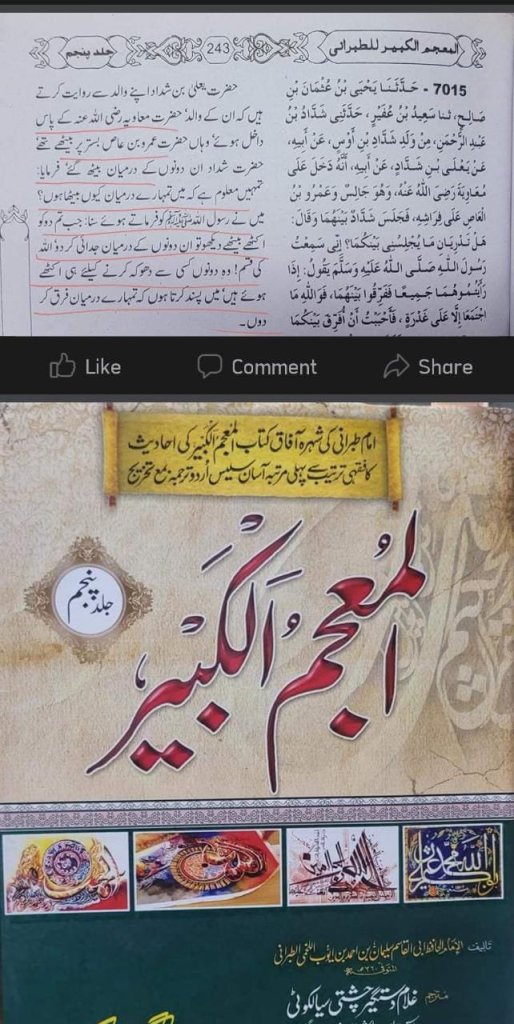 المعجم الکبیر للطبرانی
243
جلد پنجم
7015 - حَدَّثَنَا يَحْيَى بْنُ عُثْمَانَ بْنِ
صَالِحٍ، ثنا سَعِيدُ بْنُ عُفَيْرٍ، حَدَّثَنِي شَدَّادُ بْنُ
عَبْدِ الرَّحْمَنِ، مِنْ وَلَدِ شَدَّادِ بْنِ أَوْسٍ، عَنْ أَبِيهِ،
عَنْ يَعْلَى بْنِ شَدَّادٍ، عَنْ أَبِيهِ، أَنَّهُ دَخَلَ عَلَى
مُعَاوِيَةَ رَضِيَ اللَّهُ عَنْهُ، وَهُوَ جَالِسٌ وَعَمْرُو بْنُ
الْعَاصِ عَلَى فِرَاشِهِ، فَجَلَسَ شَدَّادٌ بَيْنَهُمَا وَقَالَ:
هَلْ تَدْرِيَانِ مَا يُجْلِسُنِي بَيْنَكُمَا؟ إِنِّي سَمِعْتُ
رَسُولَ اللَّهِ صَلَّى اللَّهُ عَلَيْهِ وَسَلَّمَ يَقُولُ: إِذَا
رَأَيْتُمُوهُمَا جَمِيعًا فَفَرِّقُوا بَيْنَهُمَا، فَوَاللَّهِ مَا
اجْتَمَعَا إِلَّا عَلَى غَدْرَةٍ، فَأَحْبَبْتُ أَنْ أُفَرِّقَ بَيْنَكُمَا
حضرت یعلیٰ بن شداد اپنے والد سے روایت کرتے
ہیں کہ ان کے والد، حضرت معاویہ رضی اللہ عنہ کے پاس
داخل ہوئے وہاں حضرت عمرو بن عاص بستر پر بیٹھے تھے
حضرت شداد ان دونوں کے درمیان بیٹھ گئے، فرمایا:
تمہیں معلوم ہے کہ میں تمہارے درمیان کیوں بیٹھا ہوں؟
میں نے رسول اللہ ﷺ کو فرماتے ہوئے سنا: جب تم دو کو
اکٹھے بیٹھے دیکھو تو ان دونوں کے درمیان جدائی کر دو اللہ
کی قسم! وہ دونوں کسی سے دھوکہ کرنے کیلئے ہی اکٹھے
ہوئے ہیں، میں پسند کرتا ہوں کہ تمہارے درمیان فرق کر
دوں۔
Like
Comment
Share
امام طبرانی کی شہرہ آفاق کتاب المعجم الکبیر کی احادیث
کا فقہی ترتیب سے پہلی مرتبہ آسان سلیس اُردو ترجمہ بمع تخریج
المعجم الکبیر
جلد پنجم
تالیف الامام الحافظ ابی القاسم سلیمان بن احمد بن ایوب اللخمی الطبرانی
مترجم
غلام دستگیر چشتی سیالکوٹی